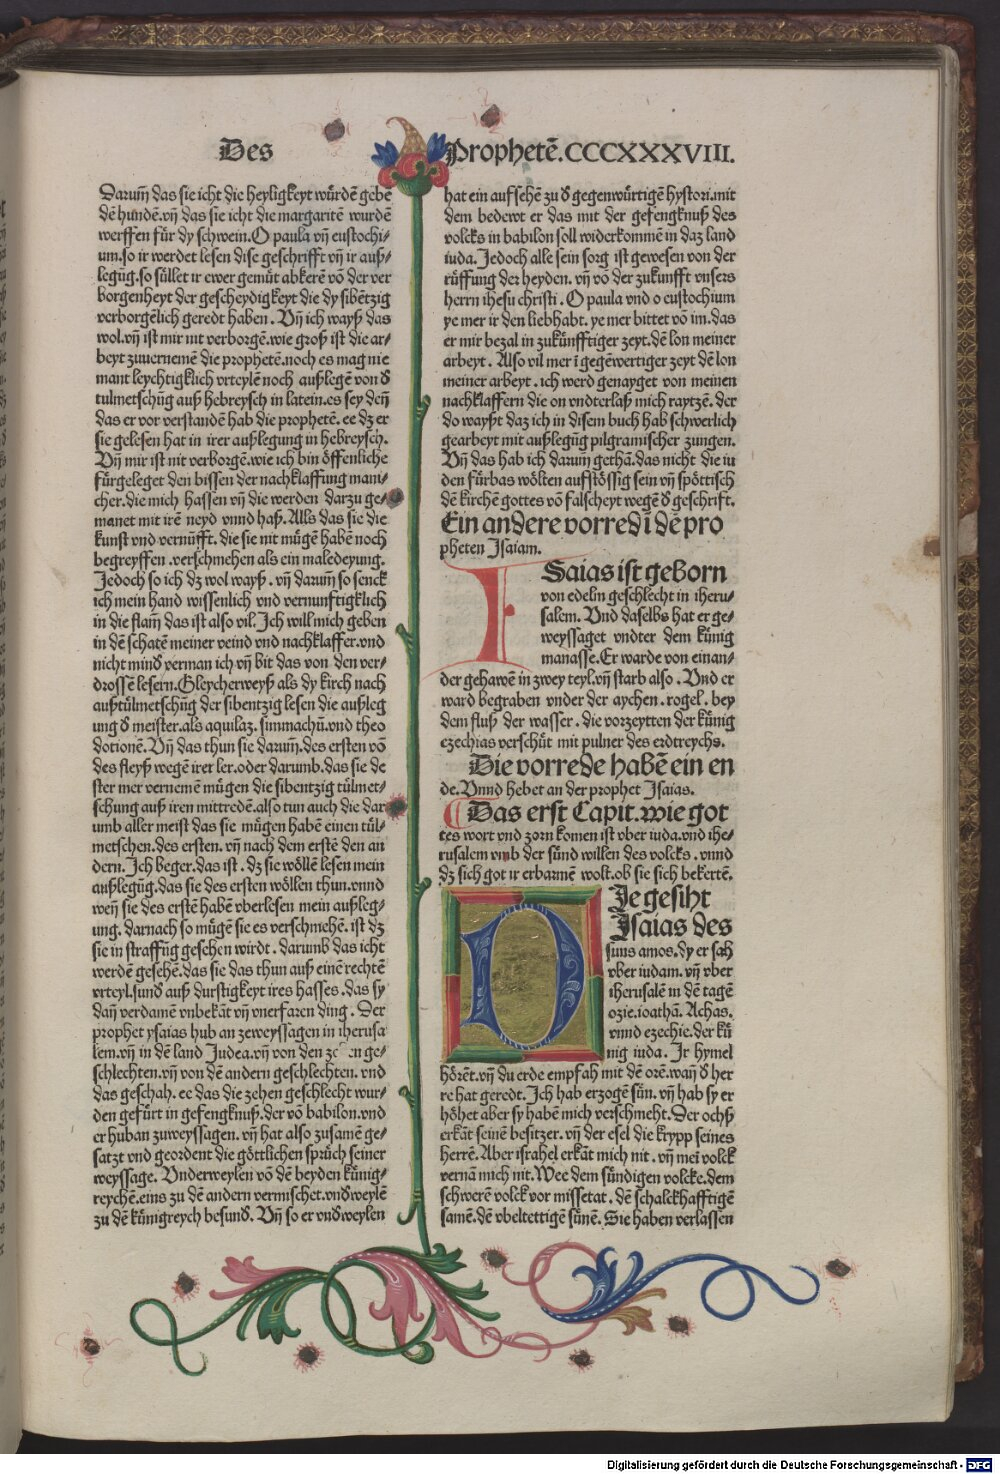 Des
Prophetē.CCCXXXVIII.
Darum̄ das sie icht die heyligkeyt wůrdē gebē
dē hundē.vn̄ das sie icht die margaritē wurdē
werffen für dy schwein.O paula vn̄ eustochi⸗
um.so ir werdet lesen dise geschrifft vn̄ ir auß⸗
legūg.so süllet ir ewer gemüt abkerē võ der ver
borgenheyt der gescheydigkeyt die dy sibētzig
verborgēlich geredt haben. Vn̄ ich wayß das
wol.vn̄ ist mir nit verborgē.wie groß ist die ar⸗
beyt zuuernemē die prophetē.noch es mag nie
mant leychtigklich vrteylē noch außlegē von d̕
tulmetschūg auß hebreysch in latein.es sey den̄
das er vor verstandē hab die prophetē. ee dz er
sie gelesen hat in irer außlegung in hebreysch.
Vn̄ mir ist nit verborgē.wie ich bin öffenliche
fürgeleget den bissen der nachklaffung mani⸗
cher.die mich hassen vn̄ die werden darzu ge⸗
manet mit irē neyd vnnd haß. Alls das sie die
kunst vnd vernüfft. die sie nit mügē habē noch
begreyffen .verschmehen als ein maledeyung.
Jedoch so ich dz wol wayß . vn̄ darum̄ so senck
ich mein hand wissenlich vnd vernunftigklich
in die flam̄ das ist also vil. Ich will mich geben
in dē schatē meiner veind vnd nachklaffer.vnd
nicht mind̕ verman ich vn̄ bit das von den ver⸗
drossē lesern.Gleycherweyß als dy kirch nach
außtülmetschūg der sibentzig lesen die außleg
ung d̕ meister.als aquilaz. simmachū.vnd theo
dotionē.Vn̄ das thun sie darum̄.des ersten võ
des fleyß wegē irer ler.oder darumb.das sie de
ster mer vernemē mügen die sibentzig tülmet⸗
schung auß iren mittredē.also tun auch die dar
umb aller meist das sie mügen habē einen tül⸗
metschen.des ersten. vn̄ nach dem erstē den an
dern. Ich beger.das ist . dz sie wöllē lesen mein
außlegūg.das sie des ersten wöllen thun.vnnd
wen̄ sie des erstē habē vberlesen mein außleg⸗
ung. darnach so mügē sie es verschmehē. ist dz
sie in straffūg gesehen wirdt . darumb das icht
werdē gesehē.das sie das thun auß einē rechtē
vrteyl.sund̕ auß durstigkeyt ires hasses .das sy
dan̄ verdamē vnbekāt vn̄ vnerfaren ding . Der
prophet ysaias hub an zeweyssagen in iherusa
lem.vn̄ in dē land Judea.vn̄ von den ge⸗
schlechten.vn̄ von dē andern geschlechten. vnd
das geschah. ee das die zehen geschlecht wur⸗
den gefürt in gefengknuß.der võ babilon.vnd
er huban zuweyssagen. vn̄ hat also zusamē ge⸗
satzt vnd geordent die göttlichen sprüch seiner
weyssage. Vnderweylen võ dē beyden künig⸗
reychē.eins zu dē andern vermischet.vnd̕weylē
zu dē künigreych besund̕. Vn̄ so er vnd̕weylen
hat ein aufsehē zu d̕ gegenwürtigē hystori.mit
dem bedewt er das mit der gefengknuß des
volcks in babilon soll widerkommē in daz land
iuda. Jedoch alle sein sorg ist gewesen von der
rüffung der heyden. vn̄ võ der zukunfft vnsers
herrn ihesu christi . O paula vnd o eustochium
ye mer ir den liebhabt. ye mer bittet võ im.das
er mir bezal in zukünfftiger zeyt.dē lon meiner
arbeyt . Also vil mer ī gegēwertiger zeyt dē lon
meiner arbeyt . ich werd genayget von meinen
nachklaffern die on vndterlaß mich raytzē. der
do wayßt daz ich in disem buch hab schwerlich
gearbeyt mit außlegūg pilgramischer zungen.
Vn̄ das hab ich darum̄ gethā.das nicht die iu
den fürbas wölten aufstössig sein vn̄ spöttisch
dē kirchē gottes võ falscheyt wegē d̕ geschrift.
Ein andere vorred ī dē pro
pheten Isaiam.
ISaias ist geborn
von edelm geschlecht in iheru⸗
salem. Vnd daselbs hat er ge⸗
weyssaget vndter dem künig
manasse.Er warde von einan⸗
der gehawē in zwey teyl.vn̄ starb also . Vnd er
ward begraben vnder der aychen . rogel . bey
dem fluß der wasser . die vorzeytten der künig
ezechias verschüt mit pulner des erdtreychs.
Die vorrede habē ein en
de.Vnnd hebet an der prophet Isaias.
Das erst Capit. wie got
tes wort vnd zorn komen ist vber iuda.vnd ihe⸗
rusalem vmb der sünd willen des volcks . vnnd
dz sich got ir erbarmē wolt.ob sie sich bekertē.
DJe gesiht
Isaias des
suns amos.dy er sah
vber iudam. vn̄ vber
iherusalē in dē tagē
ozie.ioathā. Achas.
vnnd ezechie.der kü
nig iuda. Ir hymel
hörēt.vn̄ du erde empfah mit dē orē.wan̄ d̕ her
re hat geredt. Ich hab erzogē sün. vn̄ hab sy er
höhet aber sy habē mich verschmeht. Der ochß
erkāt seinē besitzer. vn̄ der esel die krypp seines
herrē. Aber israhel erkāt mich nit . vn̄ mei volck
vernā mich nit. Wee dem sündigen volcke.dem
schwerē volck vor missetat . dē schalckhafftigē
samē.dē vbeltettigē sünē. Sie haben verlassen
Digitalisierung gefördert durch die Deutsche Forschungsgemeinschaft - DFG